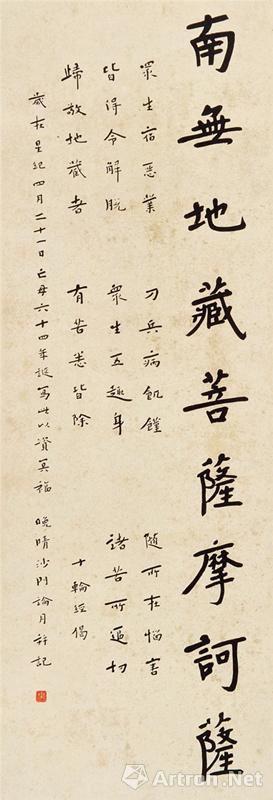 南無地藏菩薩摩訶薩
眾生宿惡業 刀兵病飢饉 隨所在惱害
皆得令解脫 眾生五趣身 諸苦所逼切
歸敬地藏者 有苦悉皆除 十輪經偈
歲在星紀四月二十一日亡母六十四年誕寫此以資冥福 晚晴沙門論月并記
Artron.Net